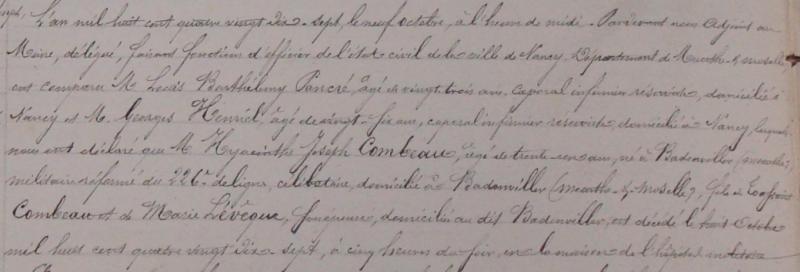 L'an mil huit cent quatre vingt dix-sept, le neuf octobre, à l'heure de midi. Pardevant nous Adjoint au
Maire, délégué, faisant fonctions d'officier de l'état civil de la ville de Nancy, Département de Meurthe-&-Moselle
ont comparu M. Louis Barthélemy Pancré, âgé de vingt trois ans, caporal infirmier réserviste, domicilié à
Nancy et M. Georges Henriet, âgé de vingt-six ans, caporal infirmier réserviste, domicilié à Nancy, lesquels
nous ont déclaré que M. Hyacinthe Joseph Combeau, âgé de trente-un ans, né à Badonviller (meurthe),
militaire réformé du 226e de ligne, célibataire, domicilié à Badonviller (meurthe-&-moselle), fils de
Combeau et de Marie Lévêque, domiciliée au dit Badonviller, est décédé le huit octobre
mil huit cent quatre vingt dix-sept, à cinq heures du soir, en la maison de l'hôpital militaire